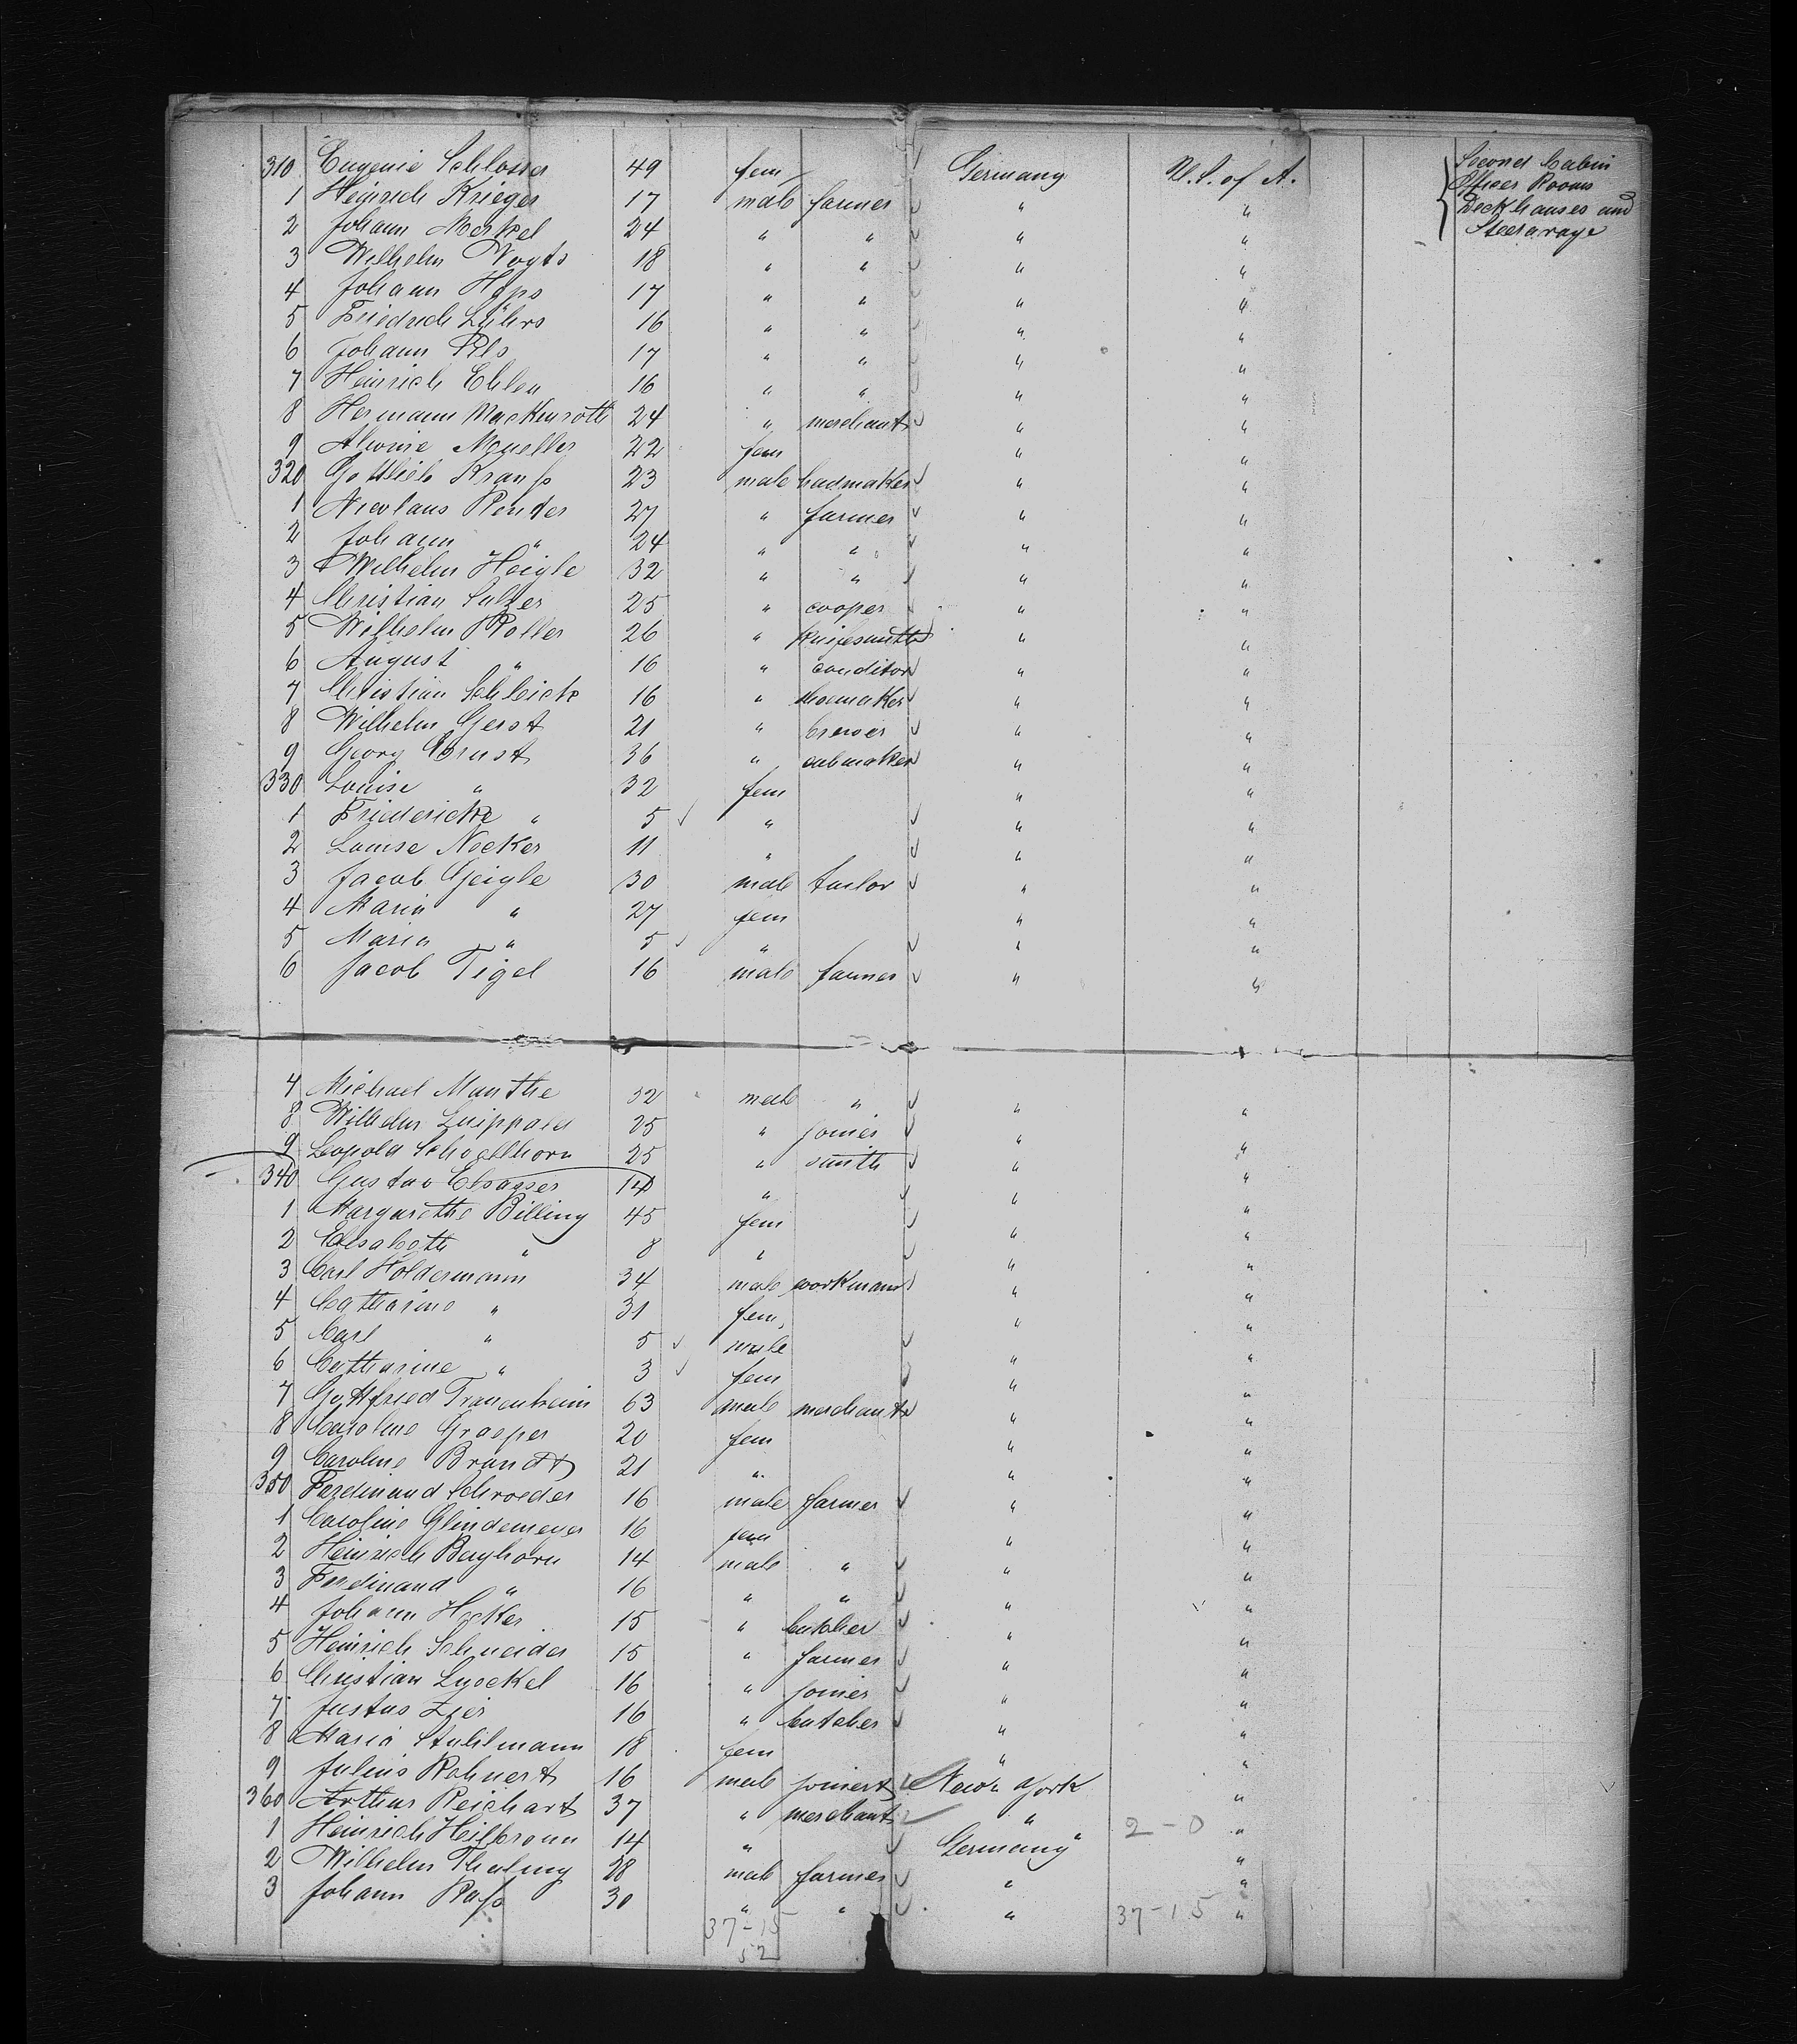 310 Eugenie Schlosser 49 fem Germany U.S. of A. Second Cabin
Officer Rooms
Deckhauses and
Steerarage
1 Heinrich Krieger 17 male farmer " "
2 Johann Merkel 24 " " " "
3 Wilhelm Vogts 18 " " " "
4 Johann Heps 17 " " " "
5 Friedrich Lührs 16 " " " "
6 Johann Pils 17 " " " "
7 Heinrich Ehlen 16 " " " "
8 Hermann Mackenroth 24 " merchant " "
9 Alwine Mueller 22 fem " "
320 Gottlieb Krauß 23 male " "
1 Nicolaus Render 27 " farmer " "
2 Johann " 24 " " " "
3 Wilhelm Heigle 32 " " " "
4 Christian Sulzer 25 " cooper " "
5 Wilhelm Roller 26 " knifesmith " "
6 August " 16 " conditor " "
7 Christian Schleich 16 " shoemaker " "
8 Wilhelm Gerst 21 " brewer " "
9 Georg Ernst 36 " cabmaker " "
330 Louise " 32 fem " "
1 Friedericke " 5 " " "
2 Louise Necker 11 " " "
3 Jacob Geigle 30 male tailor " "
4 Maria " 27 fem " "
5 Maria " 5 " " "
6 Jacob Tigel 16 male farmer " "
7 Michael Manthe 32 male " " "
8 Wilhelm Luippold 25 " joiner " "
9 Leopold Schoellhorn 25 " smith " "
340 Gustav Elsasser 14 " " "
1 Margarethe Billing 45 fem " "
2 Elisabeth " 8 " " "
3 Carl Holdermann 34 male workman " "
4 Catharine " 31 fem, " "
5 Carl " 5 male " "
6 Catharine " 3 fem " "
7 Gottfried Trauenheim 63 male merchant " "
8 Caroline Graeper 20 fem " "
9 Caroline Brandt 21 " " "
350 Ferdinand Schroeder 16 male farmer " "
1 Caroline Glindemeyer 16 fem " "
2 Heinrich Berghorn 14 male " " "
3 Ferdinand " 16 " " " "
4 Johann Hecker 15 " butcher " "
5 Heinrich Schneider 15 " farmer " "
6 Christian Lueckel 16 " joiner " "
7 Justus Zier 16 " butcher " "
8 Maria Stuhlmann 18 fem " "
9 Julius Rohnert 16 male joiner New York "
360 Arthur Reichart 37 " merchant " 2-0 "
1 Heinrich Heilbronn 14 " Germany "
2 Wilhelm 28 male farmer " "
3 Johann Raß 30 " " " 37-15 "
37-15
52